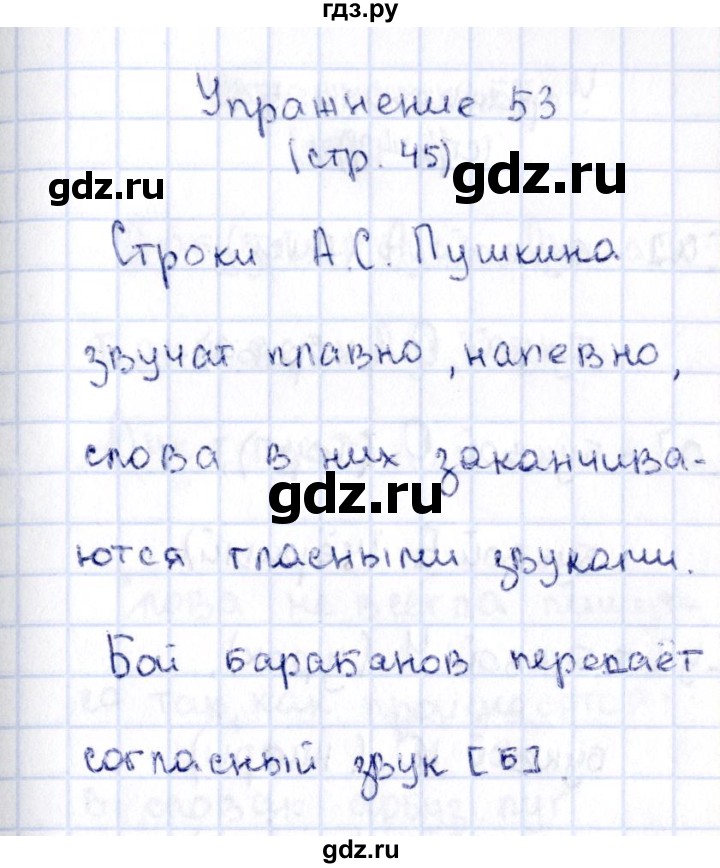 гдз.ру
Упражнение 53
(стр. 45)
gdz.ru
gdz.ru
Строки А.С. Пушкина
звучат плавно, напевно,
слова в них заканчива-
gdz.ru
ются гласными звуками.
Бой барабанов передаёт
согласный звук [б].
gdz.ru